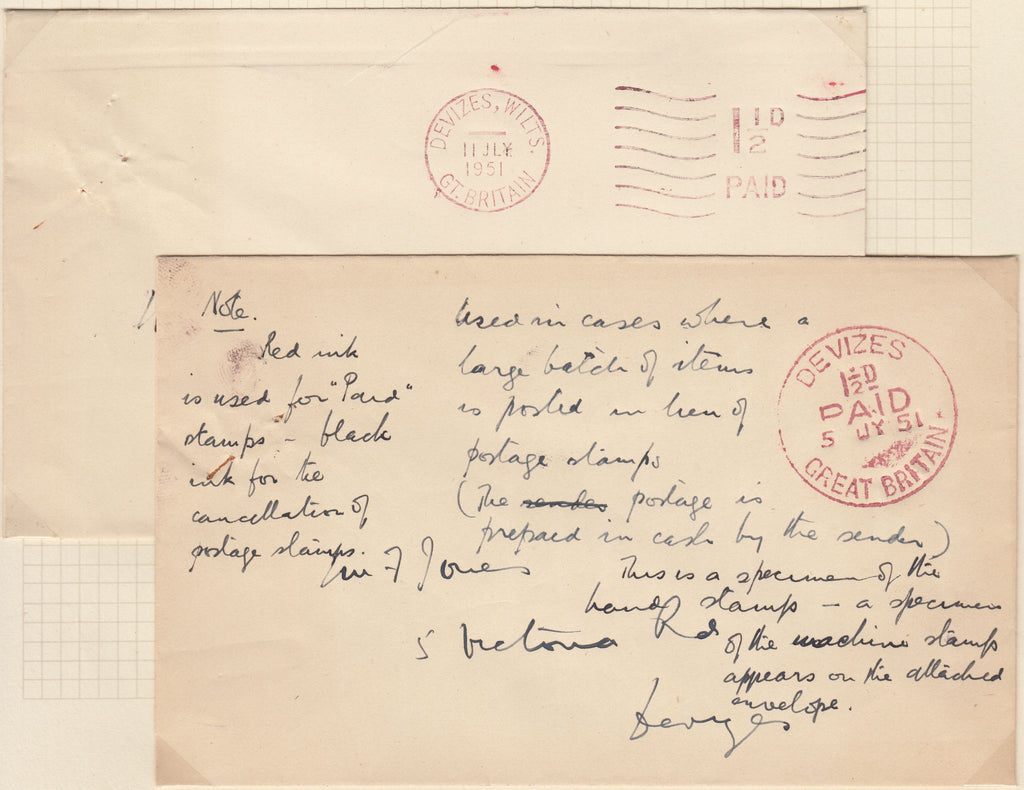 DEVIZES, WILTS.
11 JLY
1951
GT. BRITAIN
1½D
PAID
Note.
Red ink
is used for "Paid"
stamps - black
ink for the
cancellation of
postage stamps.
Used in cases where a
large batch of items
is posted in lieu of
postage stamps
(The sender postage is
prepaid in cash by the sender)
This is a specimen of the
hand stamps - a specimen
of the machine stamps
appears on the attached
envelope.
DEVIZES
1½D
PAID
5 JY 51
GREAT BRITAIN
Jones
5 Victoria Rd
Devizes